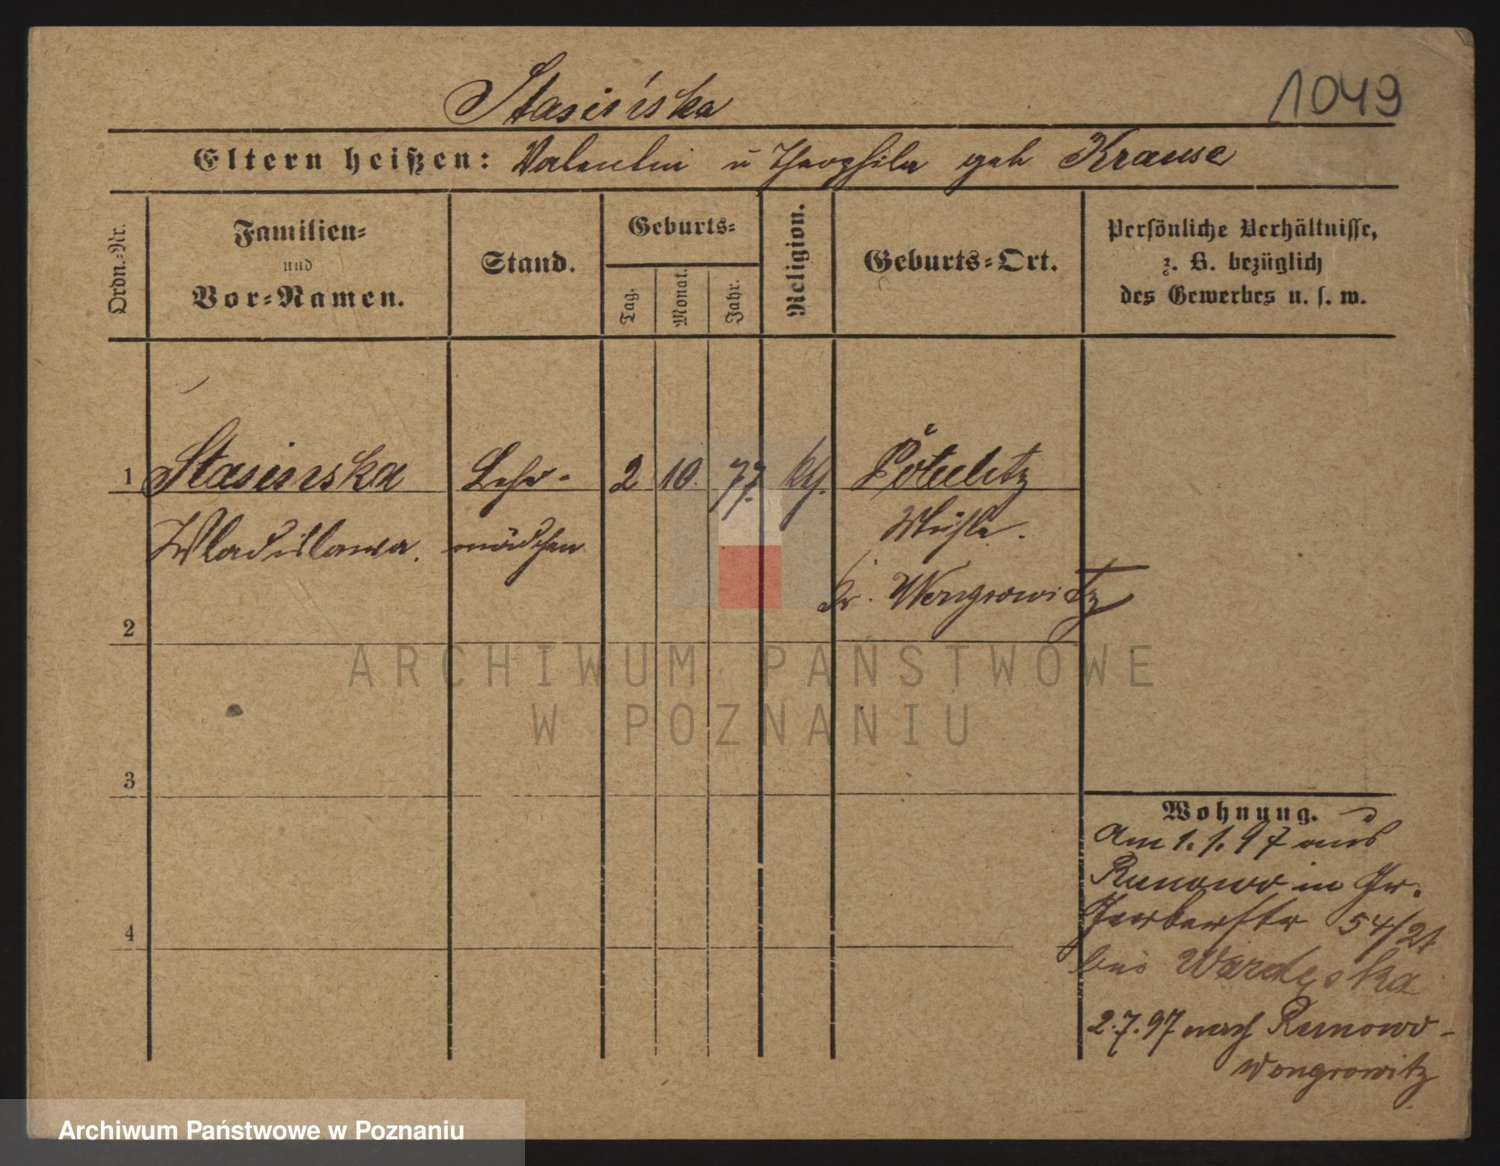 Stasińska
1049
Eltern heißen: Valentin u Theophila geb Krause
Ordn.-Nr.
Familien-
und
Vor-Namen.
Stand.
Geburts-
Tag.
Monat.
Jahr.
Religion.
Geburts-Ort.
Persönliche Verhältnisse,
z. B. bezüglich
des Gewerbes u. s. w.
1 Stasinska Lehr- 2 10. 77.
Wladislawa. mädchen Mühle.
Kr. Wongrowitz
2
3
4
Wohnung.
Am 1.1.97 aus
Runowo in Gr.
Gerberstr 54/21
bei
2.7.97 nach Runowo-
Wongrowitz
ARCHIWUM PAŃSTWOWE
W POZNANIU
Archiwum Państwowe w Poznaniu